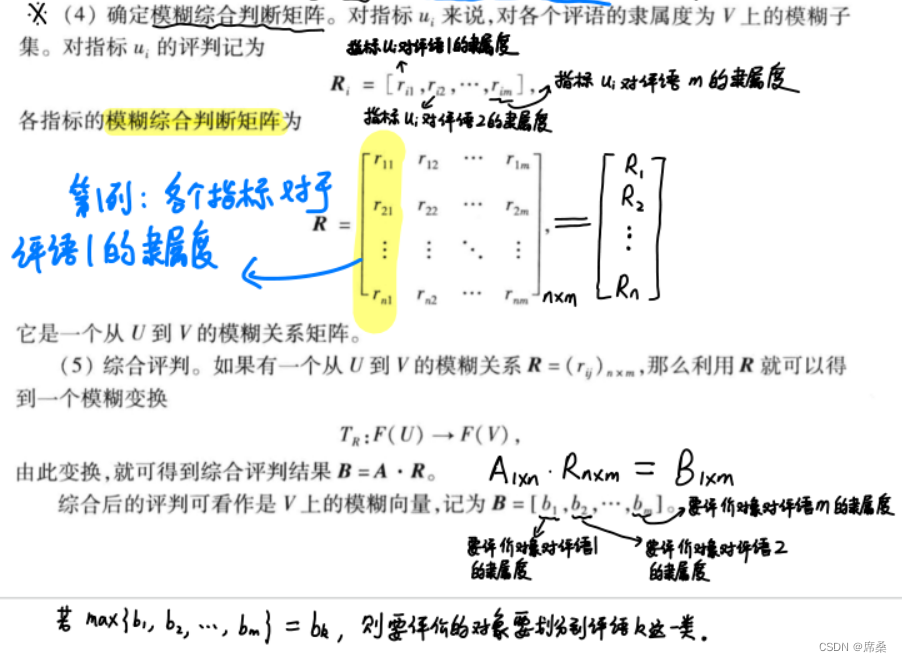 ※ (4) 确定模糊综合判断矩阵。对指标 uᵢ 来说,对各个评语的隶属度为 V 上的模糊子
集。对指标 uᵢ 的评判记为
指标uᵢ对评语1的隶属度
Rᵢ = [rᵢ₁,rᵢ₂,⋯,rᵢₘ],
指标uᵢ对评语m的隶属度
指标uᵢ对评语2的隶属度
各指标的模糊综合判断矩阵为
第1列:各个指标对于
评语1的隶属度
R =
r₁₁ r₁₂ ⋯ r₁ₘ
r₂₁ r₂₂ ⋯ r₂ₘ
⋮ ⋮ ⋱ ⋮
rₙ₁ rₙ₂ ⋯ rₙₘ
, n×m
=
R₁
R₂
⋮
Rₙ
它是一个从 U 到 V 的模糊关系矩阵。
(5) 综合评判。如果有一个从 U 到 V 的模糊关系 R=(rᵢⱼ)ₙ×ₘ,那么利用 R 就可以得
到一个模糊变换
T_R:F(U)→F(V),
由此变换,就可得到综合评判结果 B=A·R。
A₁×ₙ·Rₙ×ₘ=B₁×ₘ
综合后的评判可看作是 V 上的模糊向量,记为 B=[b₁,b₂,⋯,bₘ]。
要评价对象对评语m的隶属度
要评价对象对评语1
的隶属度
要评价对象对评语2
的隶属度
若 max{b₁, b₂, ⋯, bₘ} = bₖ, 则要评价的对象要划分到评语k这一类.
CSDN @席桑